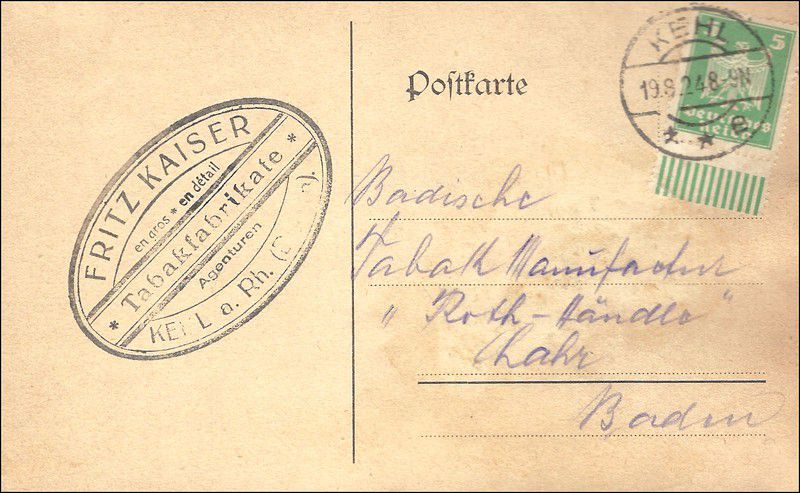 FRITZ KAISER
en gros * en détail
* Tabakfabrikate *
Agenturen
KEHL a. Rh.
Postkarte
KEHL
19.8.24.8-9N
* * e
5
Deutsches
Reich
Badische
Tabak Manufactur
„Roth-Händle"
Lahr
Baden